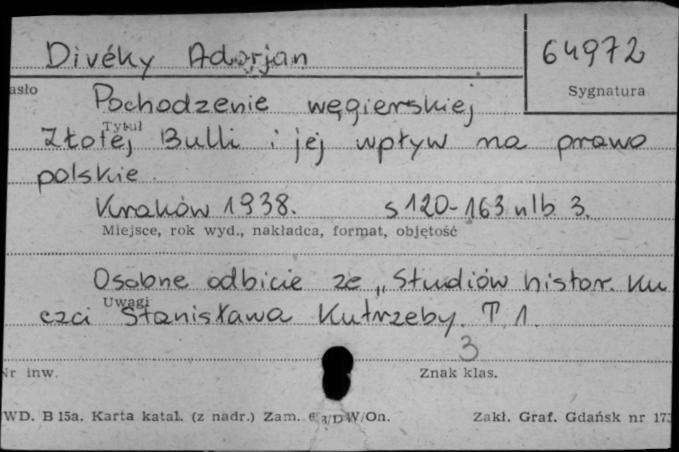 Divéky Adorjan
64972
asło
Sygnatura
Pochodzenie węgierskiej
Tytuł
Złotej Bulli i jej wpływ na prawo
polskie
Kraków 1938. s 120-163 nlb 3.
Miejsce, rok wyd., nakładca, format, objętość
Osobne odbicie ze „Studiów histor. ku
Uwagi
czci Stanisława Kutrzeby. T. 1.
3
Nr inw.
Znak klas.
WD. B 15a. Karta katal. (z nadr.) Zam. /DW/On.
Zakł. Graf. Gdańsk nr 173